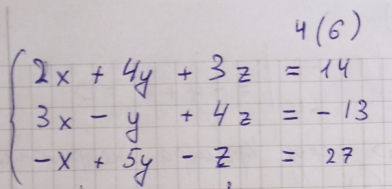 4(6)
2x + 4y + 3z = 14
3x - y + 4z = -13
-x + 5y - z = 27